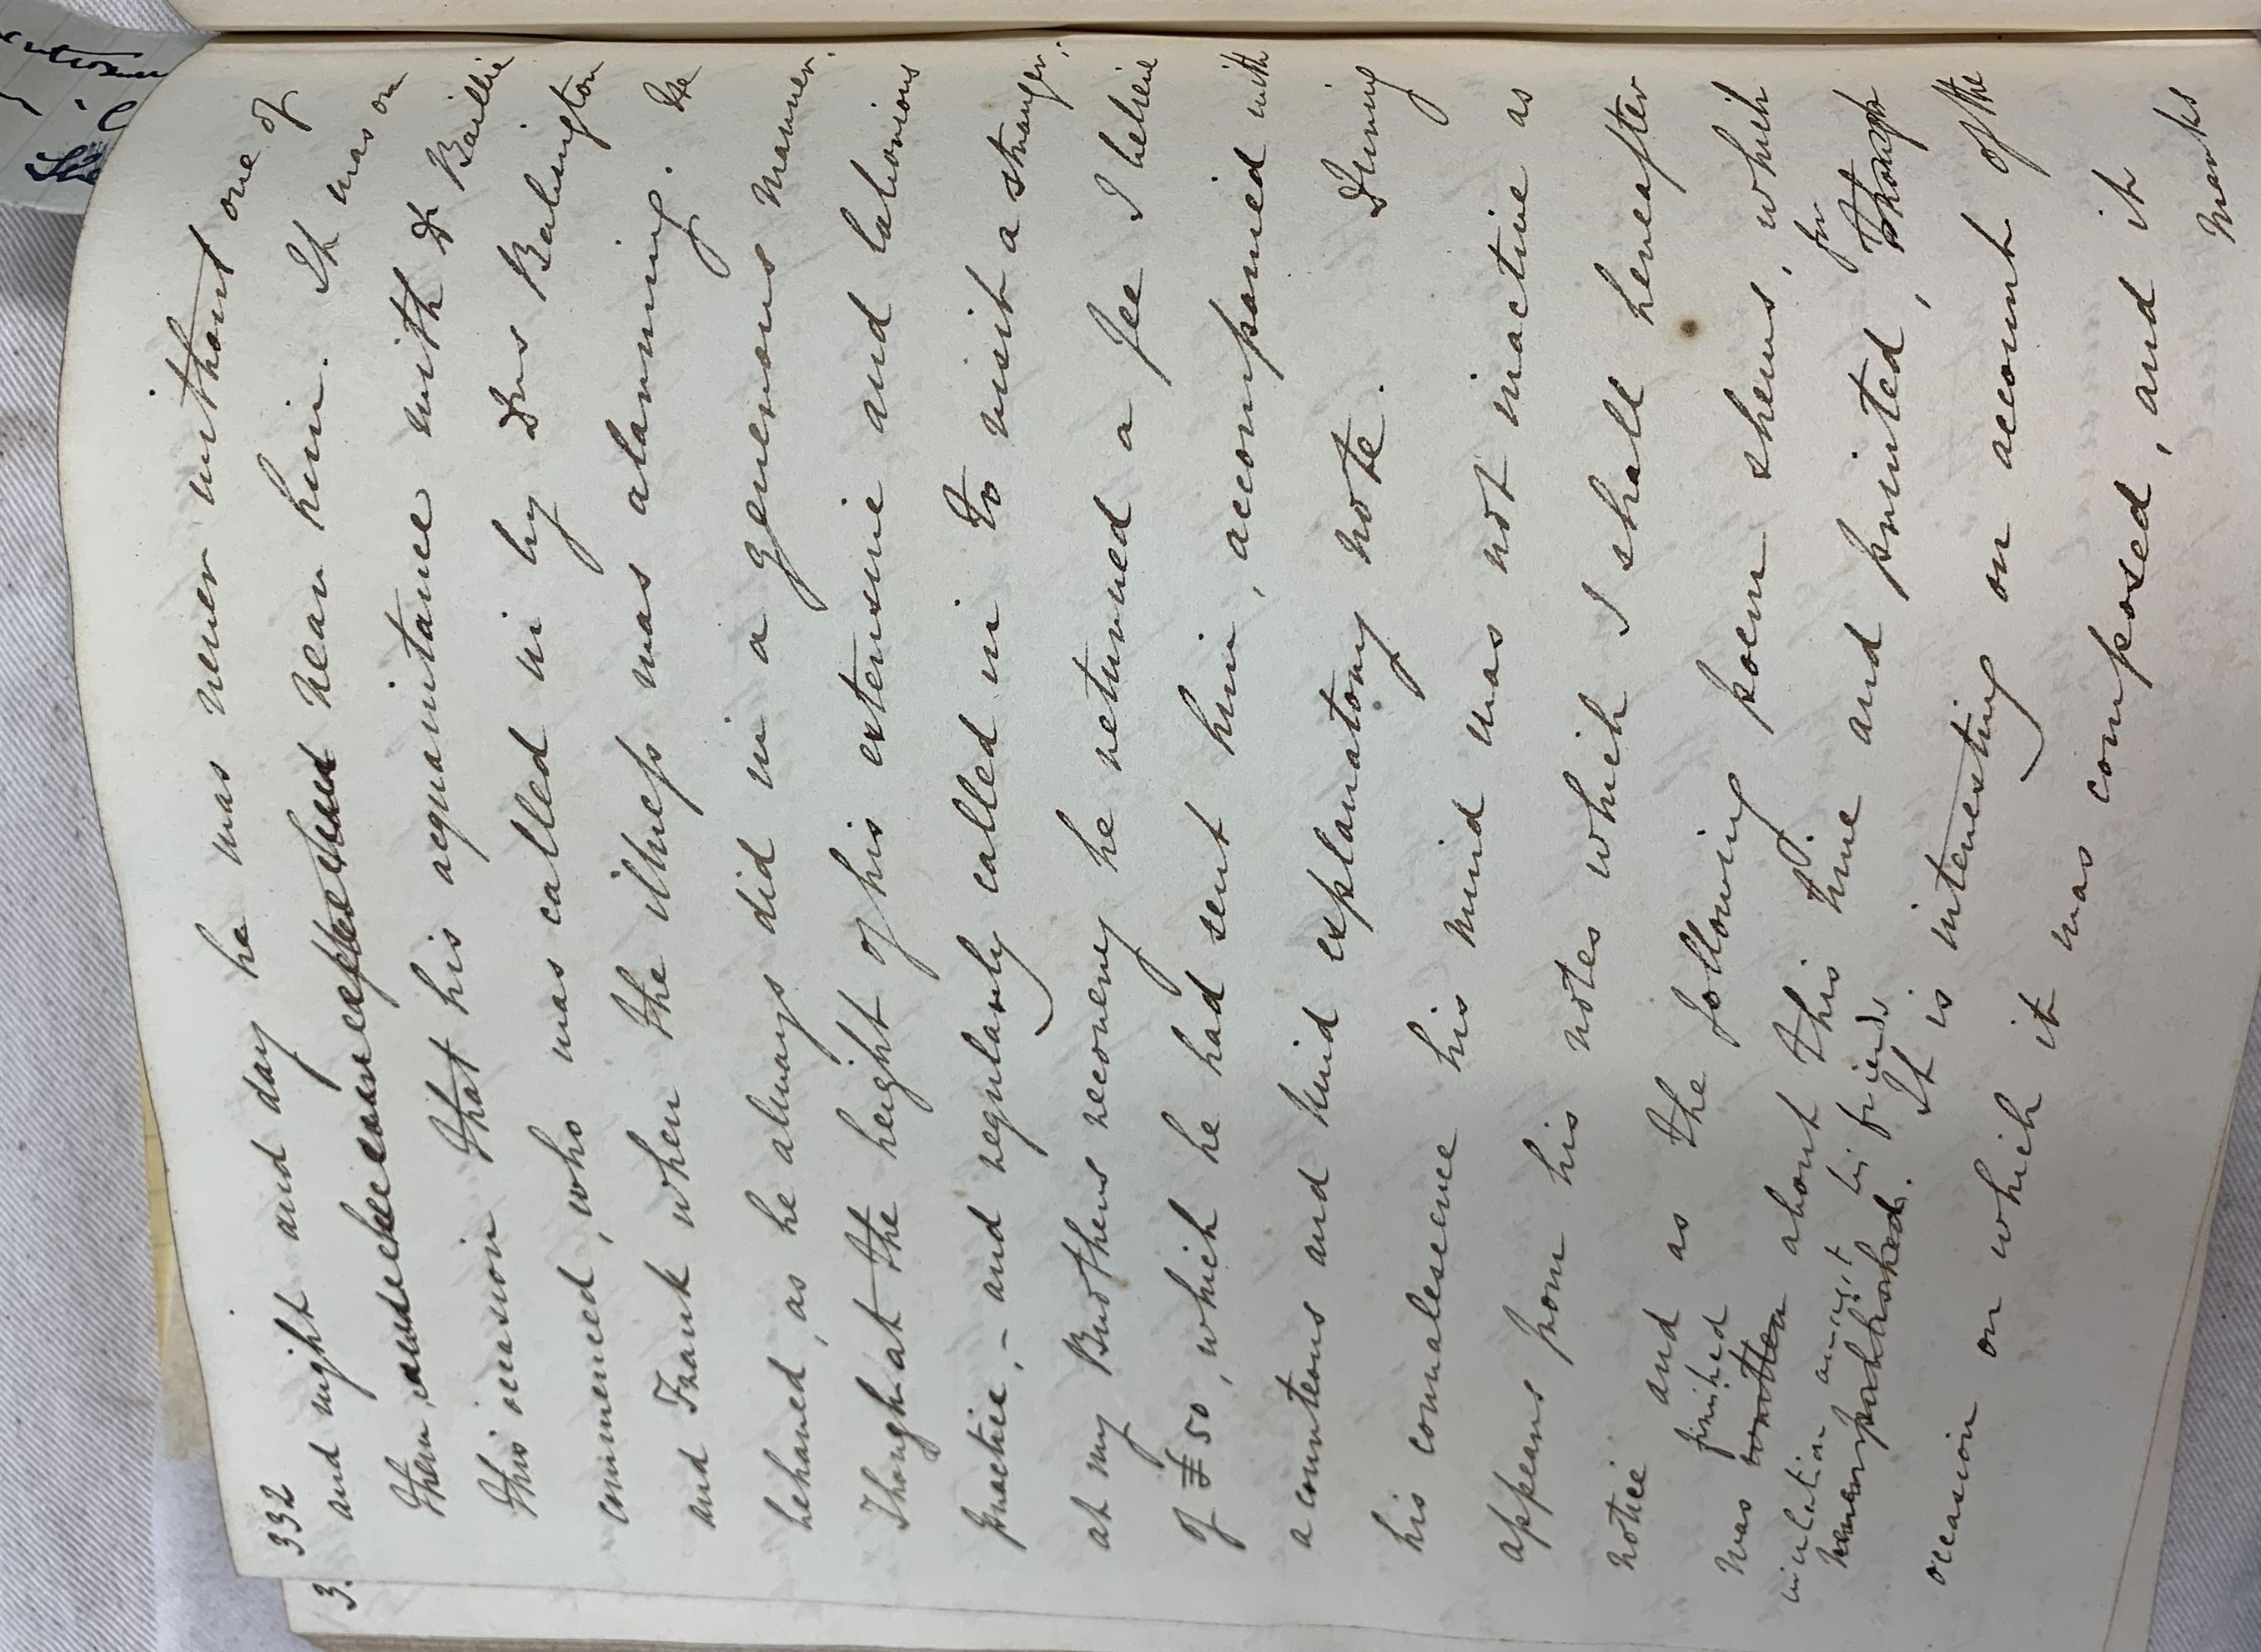 332
and night and day he was never without one of
them near him. It was on
this occasion that his acquaintance with Dr Baillie
commenced, who was called in by Drs Babington
and Frank when the illness was alarming. He
behaved, as he always did in a generous manner.
Though at the height of his extensive and laborious
practice,- and regularly called in to visit a stranger,
at my Brothers recovery he returned a fee I believe
of £50, which he had sent him, accompanied with
a courteous and kind explanatory note. During
his convalescence his mind was not inactive as
appears from his notes which I shall hereafter
notice and as the following poem shews, which
was written finished about this time and printed, though for
circulation amongst his friends
never published. It is interesting on account of the
occasion on which it was composed, and it
marks